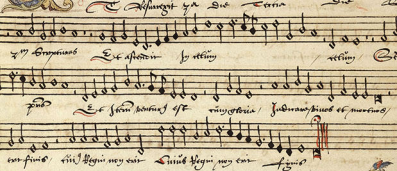 Et Resurrexit 3a die Tertia die
cm Scripturas Et ascendit In celum celum Se
pris Et Iterū venturꝰ est cum gloria Iudicare vivos et mortuos
erit finis cuiꝰ Regni non erit Cuius Regni non erit finis